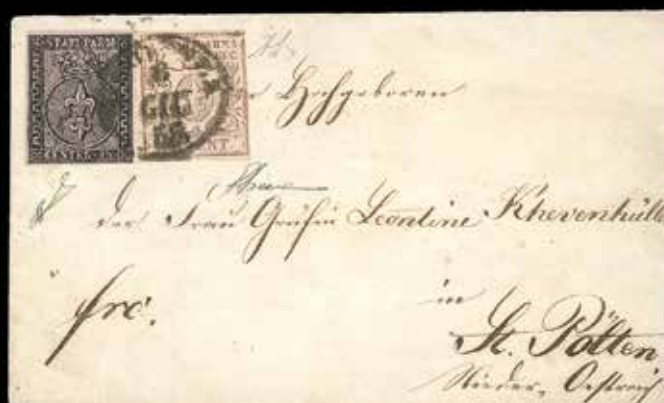 STATI PARM
CENTES. 15
GIU
Hochgeboren
der Frau Gräfin Leontine Khevenhülle
frc.
in
St. Pölten
Nieder. Oestreich